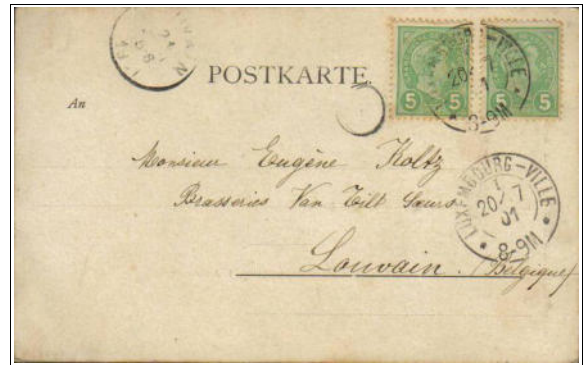 POSTKARTE.
5 5 5 5
LUXEMBOURG-VILLE
20/7
01
8-9M
An
Monsieur Eugène Koltz
Brasseries Van Tilt Sœurs
Louvain (Belgique)
LUXEMBOURG-VILLE
20/7
01
8-9M